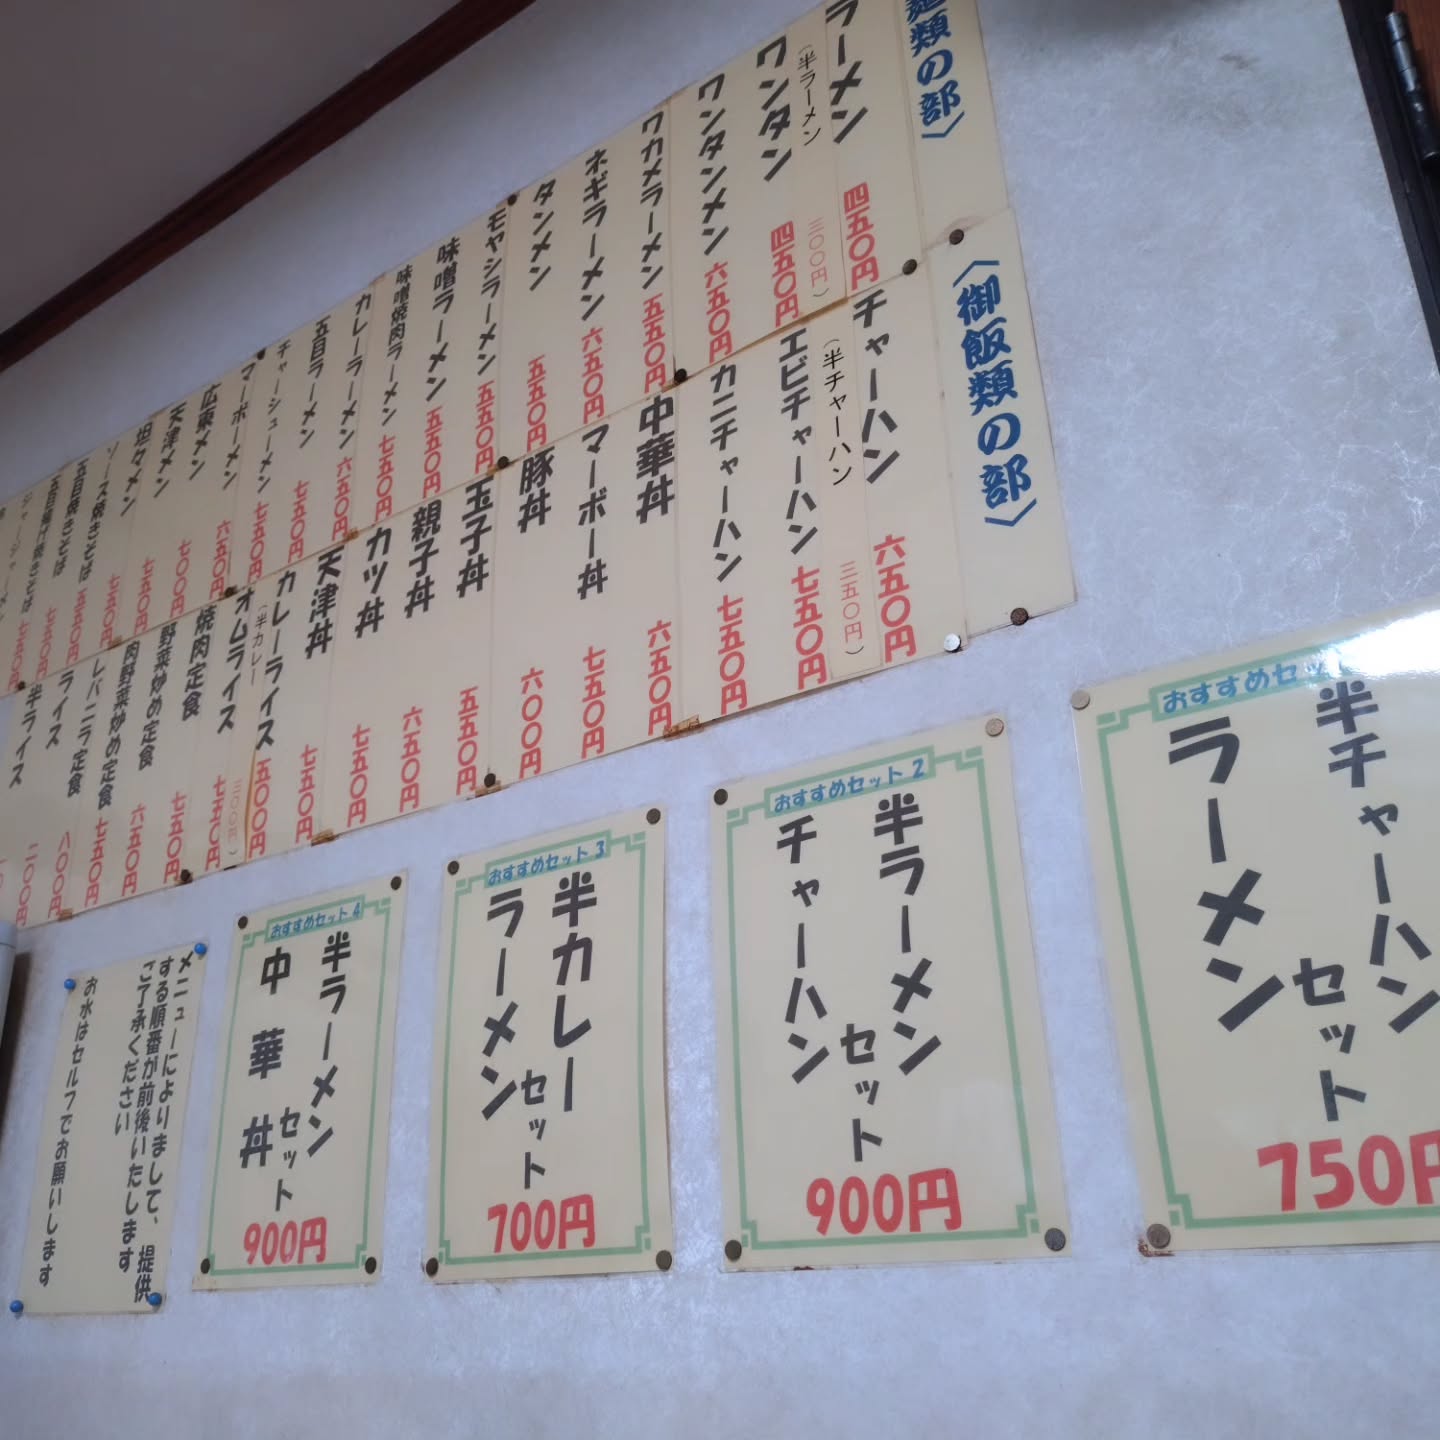 麺類の部〉
ラーメン 四五〇円
(半ラーメン 三〇〇円)
ワンタン 四五〇円
ワンタンメン 六五〇円
ワカメラーメン 五五〇円
ネギラーメン 六五〇円
タンメン 五五〇円
モヤシラーメン 五五〇円
味噌ラーメン 五五〇円
味噌焼肉ラーメン 七五〇円
カレーラーメン 六五〇円
五目ラーメン 七五〇円
チャーシューメン 七五〇円
マーボーメン 六五〇円
広東メン
天津メン 七〇〇円
坦々メン 七五〇円
ソース焼きそば 五五〇円
五目焼きそば 七五〇円
五目揚げ焼きそば 七五〇円
ジャージャーメン
〈御飯類の部〉
チャーハン 六五〇円
(半チャーハン 三五〇円)
エビチャーハン 七五〇円
カニチャーハン 七五〇円
中華丼 六五〇円
マーボー丼 七五〇円
豚丼 六〇〇円
玉子丼 五五〇円
親子丼 六五〇円
カツ丼 七五〇円
天津丼 七五〇円
カレーライス 五〇〇円
(半カレー 三〇〇円)
オムライス 七五〇円
焼肉定食 七五〇円
野菜炒め定食 六五〇円
肉野菜炒め定食 七五〇円
レバニラ定食 八〇〇円
ライス 二〇〇円
半ライス
おすすめセット
半チャーハン
ラーメン
セット
750円
おすすめセット 2
半ラーメン
チャーハン
セット
900円
おすすめセット 3
半カレー
ラーメン
セット
700円
おすすめセット 4
半ラーメン
中華丼
セット
900円
メニューによりまして、提供
する順番が前後いたします
ご了承ください
お水はセルフでお願いします